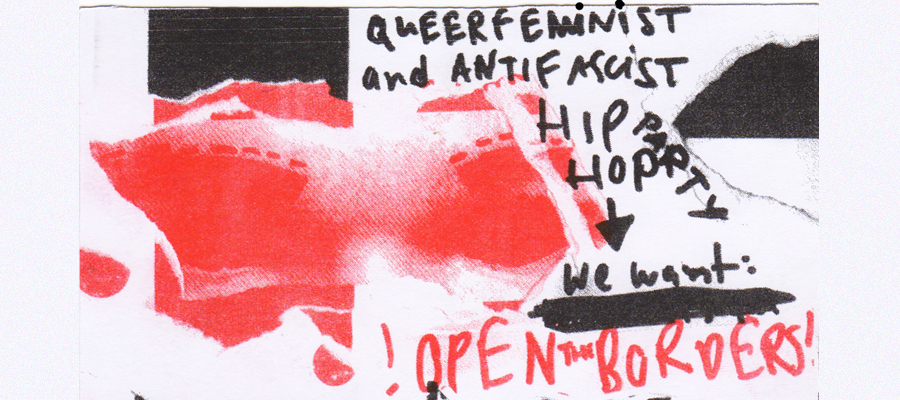 QUEERFEMINIST
and ANTIFASCIST
HIP
HOP
PARTY
We want:
! OPEN THE BORDERS!